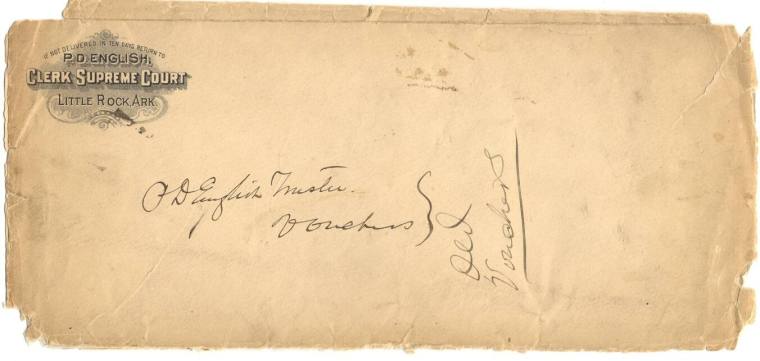 IF NOT DELIVERED IN TEN DAYS RETURN TO
P.D. ENGLISH,
CLERK SUPREME COURT
LITTLE ROCK, ARK.
P D English Trustee.
Vouchers
Old
Vouchers